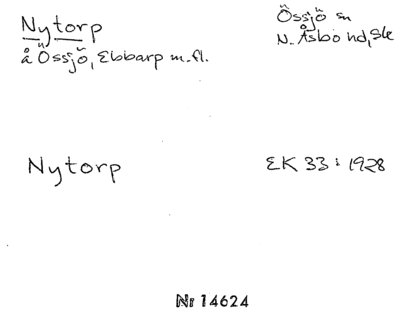 Nytorp
å Össjö, Ebbarp m.fl.
Össjö sn
N. Åsbo hd, Ske
Nytorp
EK 33 : 1928
Nr 14624